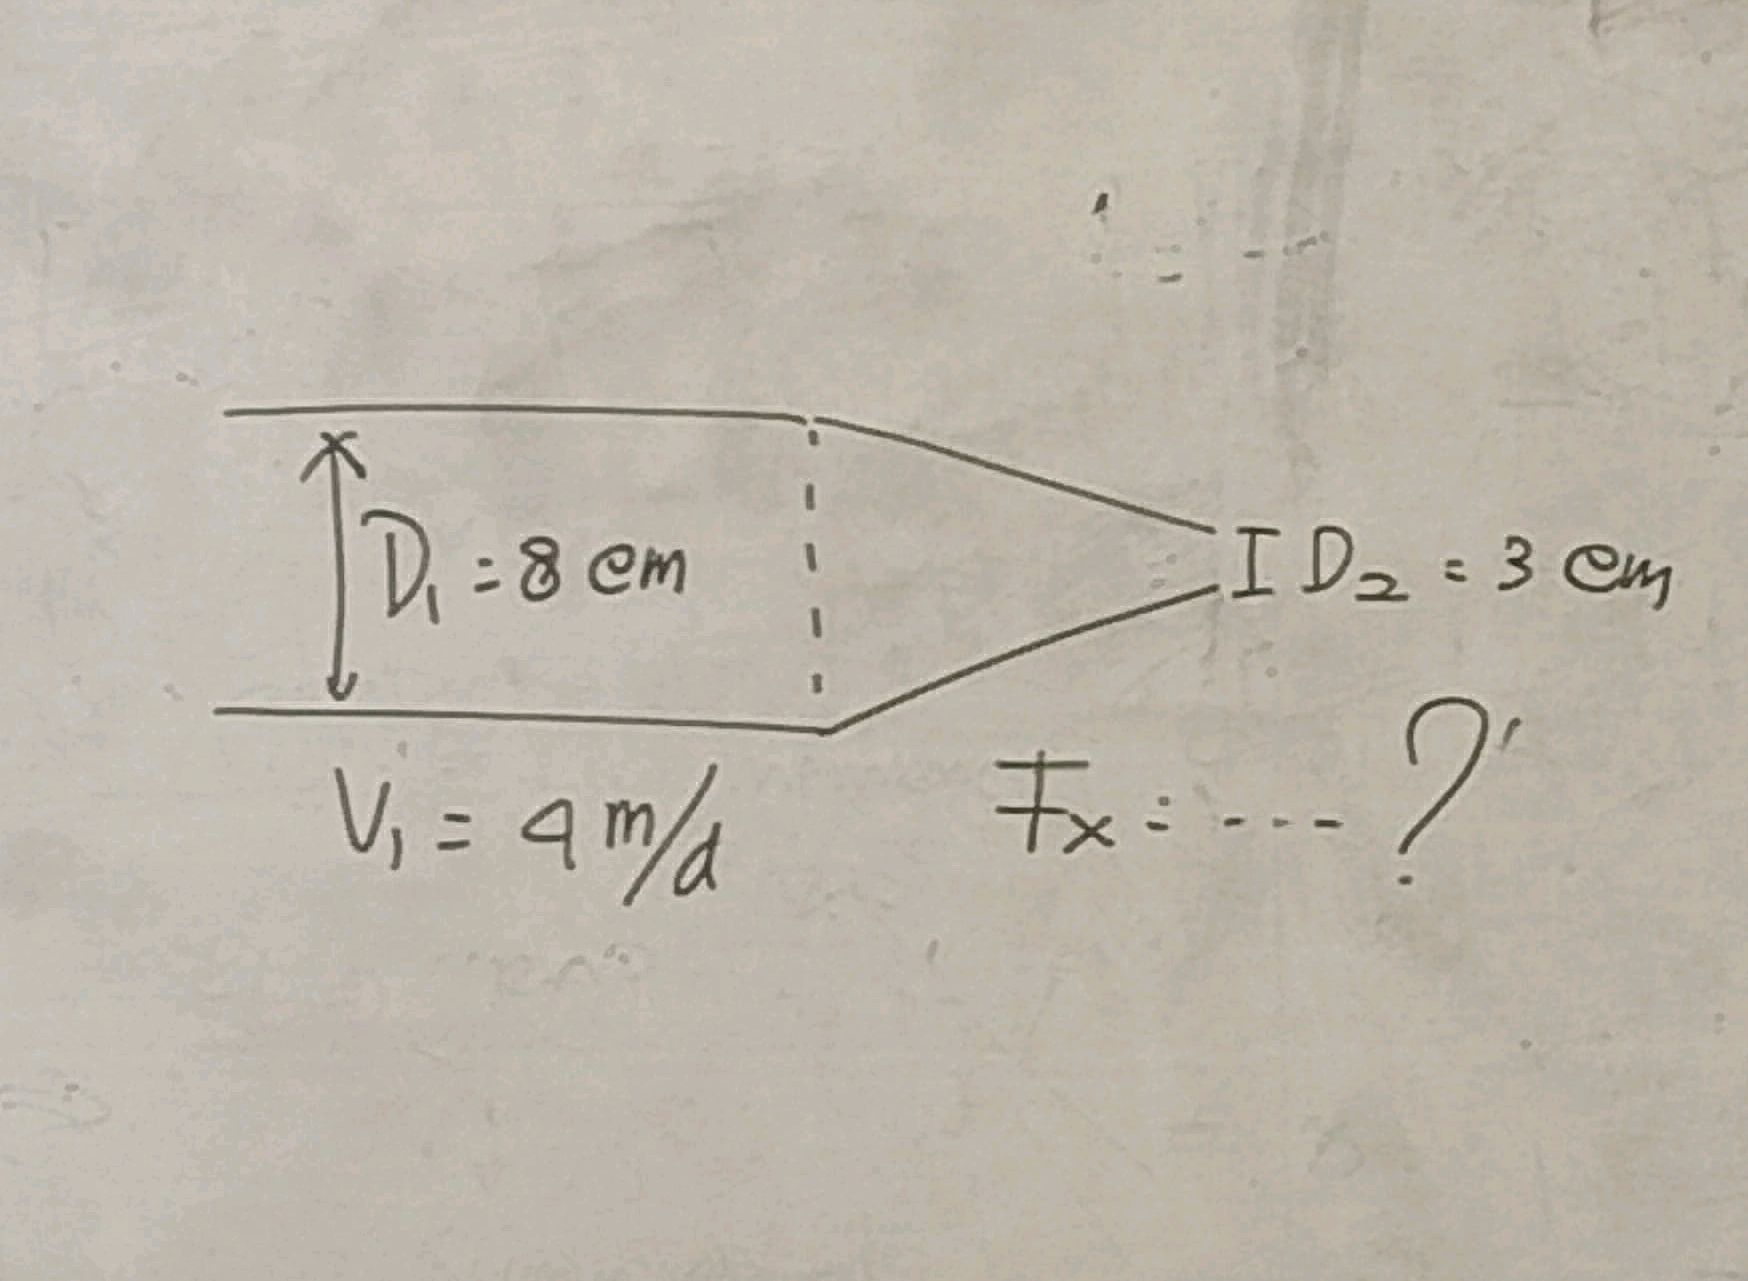 D₁ = 8 cm
I D₂ = 3 cm
V₁ = 4 m/d
Fx = ---- ?